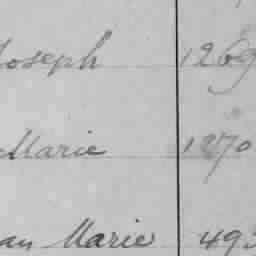 Joseph 1269
Marie 1270
an Marie 493